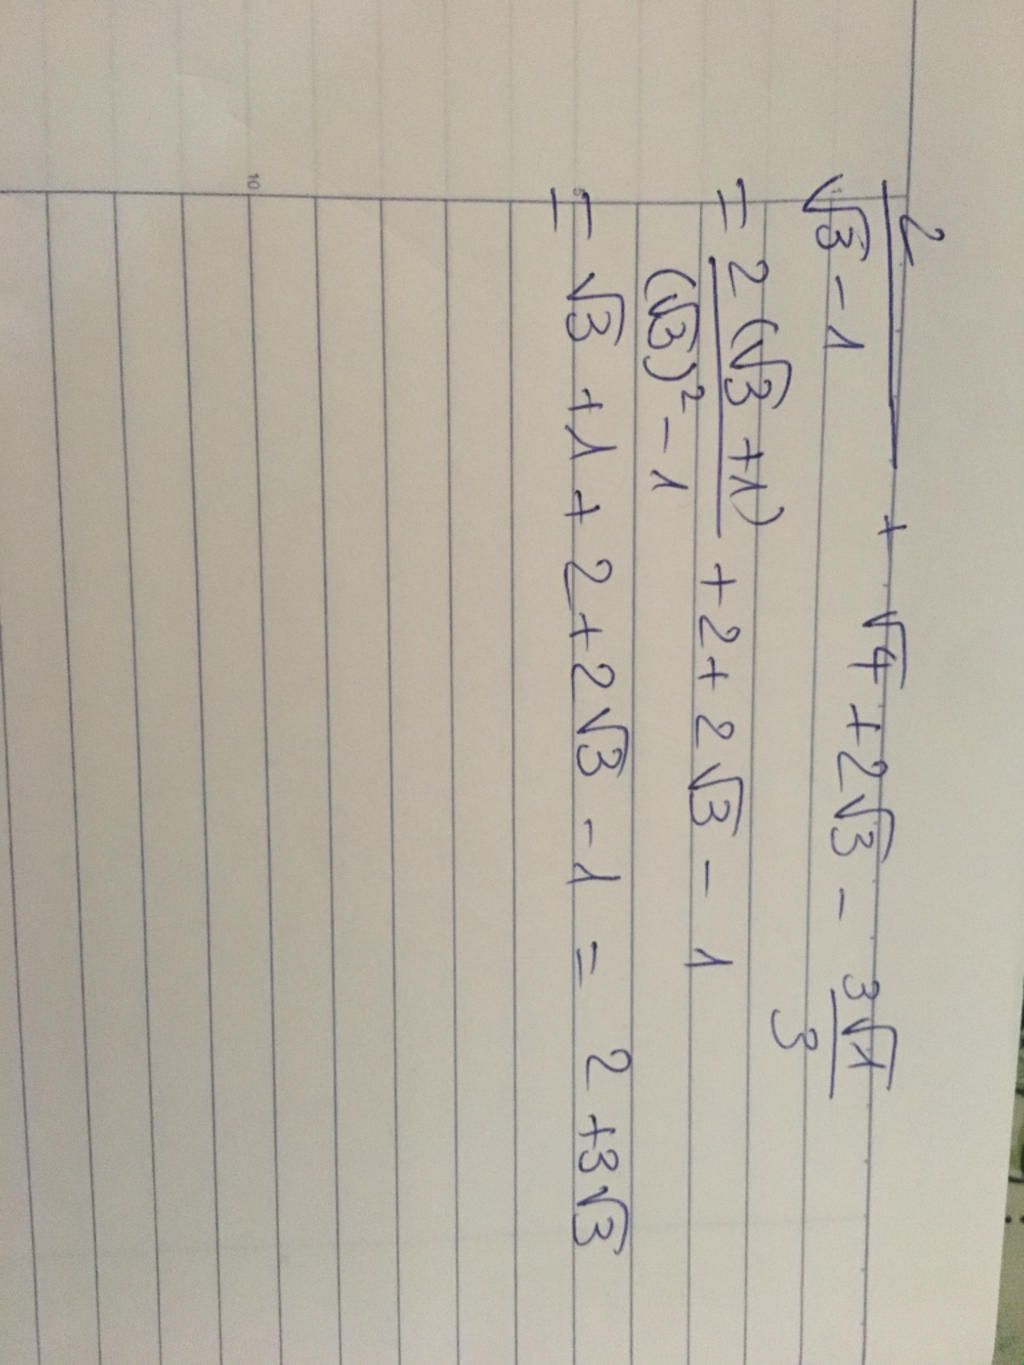 2/(√3 - 1) + √4 + 2√3 - 3√1/3
= 2(√3 + 1)/((√3)² - 1) + 2 + 2√3 - 1
= √3 + 1 + 2 + 2√3 - 1 = 2 + 3√3
5
10